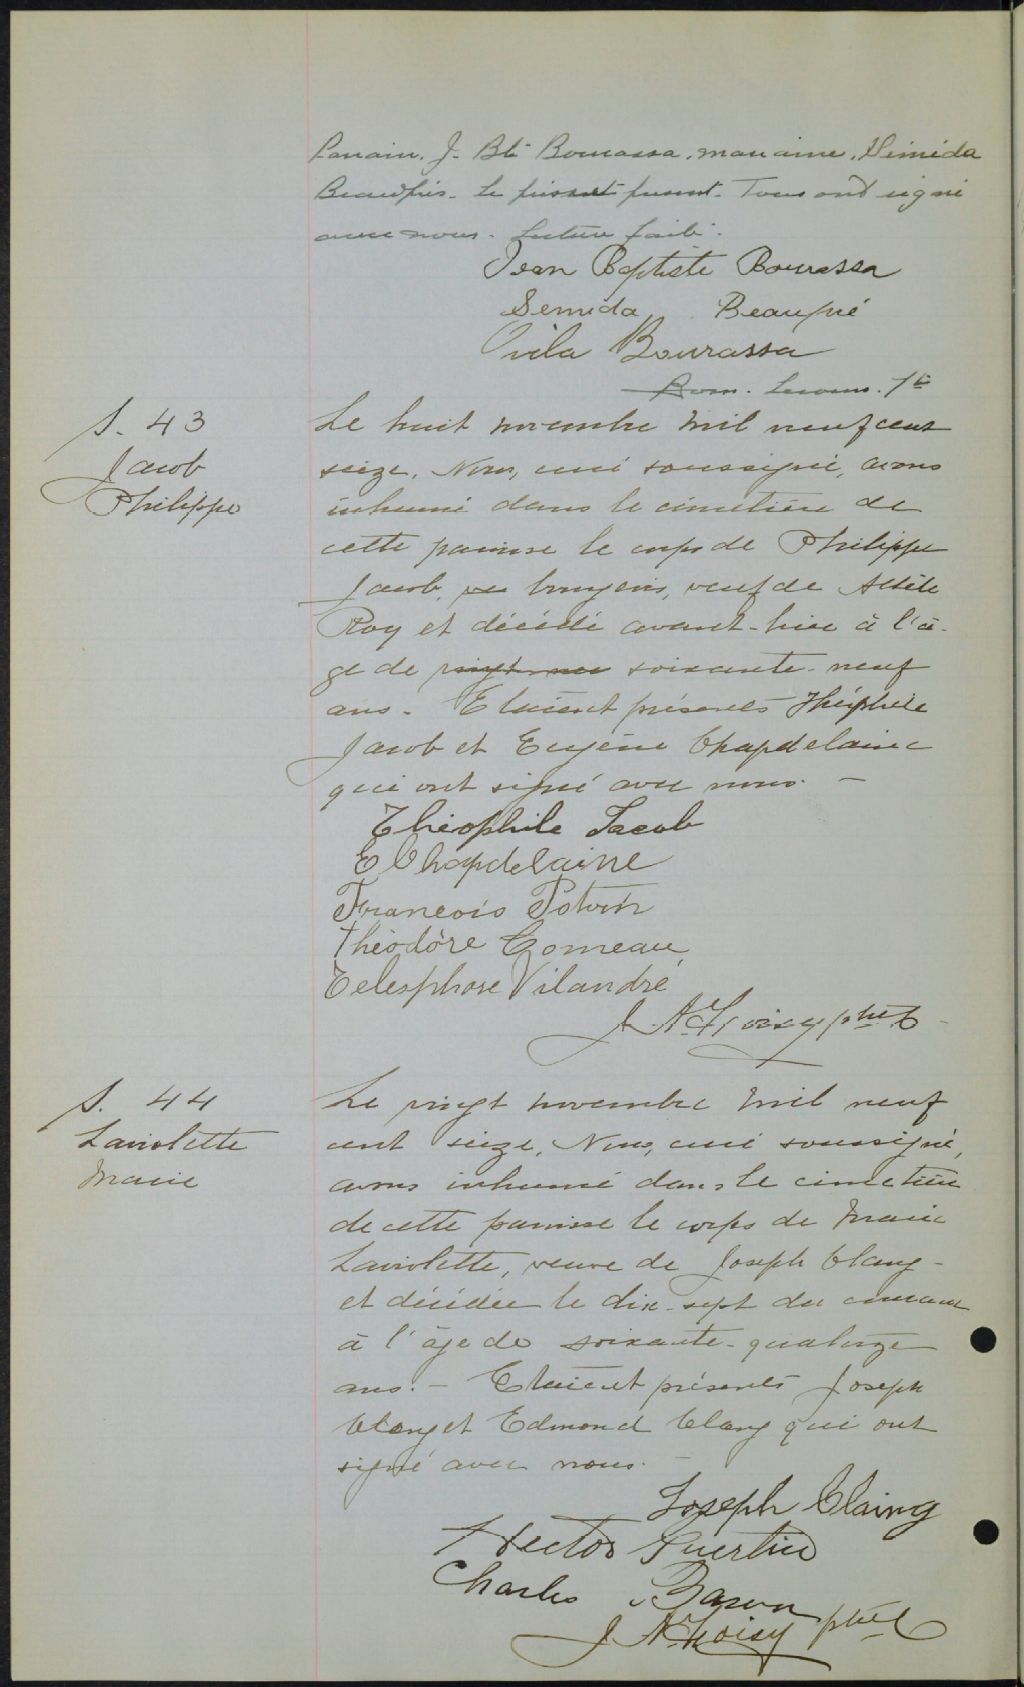 Parrain, J. Bte Bourassa, marraine, Séméda
Beaupré. Le père présent. Tous ont signé
avec nous. Lecture faite.
Jean Baptiste Bourassa
Semeda Beaupré
Ovila Bourassa
Ptre
S. 43
Jacob
Philippe
Le huit novembre mil neuf cent
seize, Nous, curé soussigné, avons
inhumé dans le cimetière de
cette paroisse le corps de Philippe
Jacob, bourgeois, veuf de Adèle
Roy et décédé avant-hier à l'â-
ge de soixante-neuf
ans. Etaient présents Théophile
Jacob et Eugène Chapdelaine
qui ont signé avec nous. —
Théophile Jacob
E Chapdelaine
Francois Potvin
Théodore Comeau
Telesphore Vilandré
J. A. Froisy ptre
S. 44
Laviolette
Marie
Le vingt novembre mil neuf
cent seize, Nous, curé soussigné,
avons inhumé dans le cimetière
de cette paroisse le corps de Marie
Laviolette, veuve de Joseph Clang
et décédée le dix-sept du courant
à l'âge de soixante-quatorze
ans. — Etaient présents Joseph
Clang et Edmond Clang qui ont
signé avec nous. —
Joseph Claing
Hector Guertin
Charles Baron
J. A. Froisy ptre